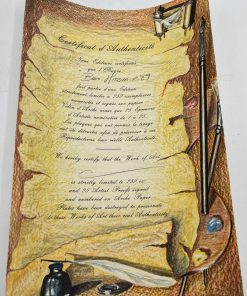 Certificat d'Authenticité
Nous Editeurs certifions
que l'Œuvre
fait partie d'une Edition
strictement limitée à 250 exemplaires
numérotés et signés sur papier
d'Artiste numérotées de 1 à 25.
Les plaques qui ont permis le tirage
ont été détruites afin de préserver à ces
Reproductions leur réelle Authenticité.
We hereby certify that the Work of Art
is strictly limited to 250 ex.
and 25 Artist Proofs signed
and numbered on Arche Paper.
Plates have been destroyed to preserve
to these Works of Art their real Authenticity.